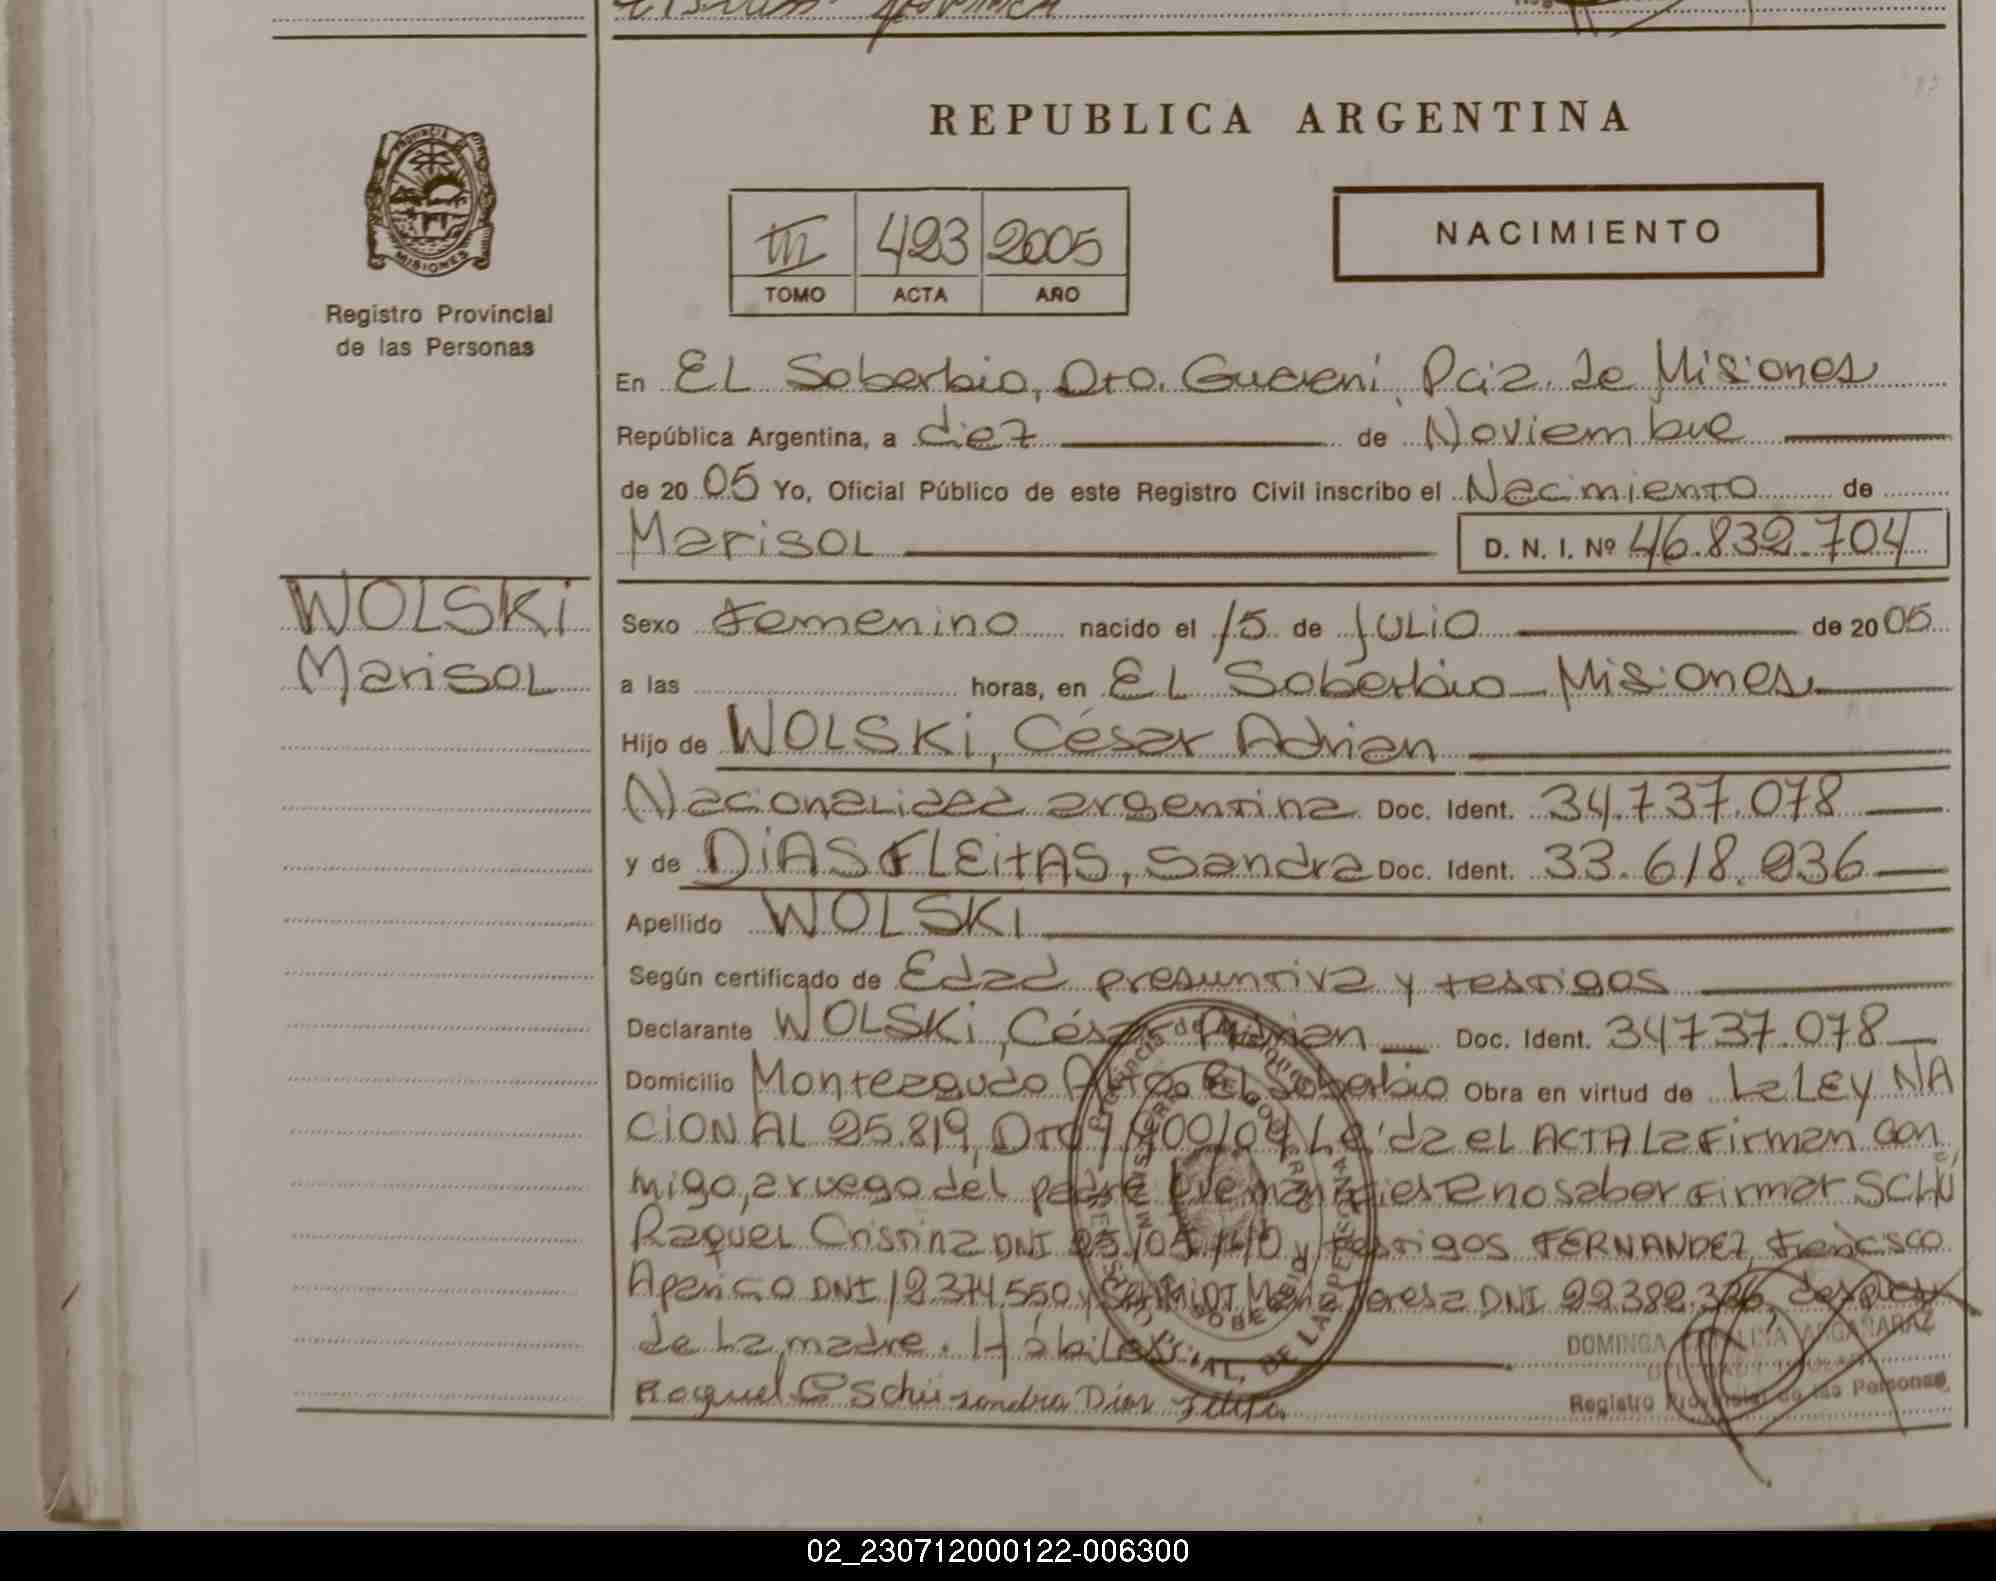 REPUBLICA ARGENTINA
PROVINCIA
MISIONES
Registro Provincial
de las Personas
III 423 2005
TOMO ACTA AÑO
NACIMIENTO
En EL Soberbio, Dto. Guarani, Pcia. de Misiones
República Argentina, a diez de Noviembre
de 2005 Yo, Oficial Público de este Registro Civil inscribo el Nacimiento de
Marisol D. N. I. Nº 46.832.704
WOLSKi
Marisol
Sexo Femenino nacido el 15 de JULiO de 2005
a las horas, en EL Soberbio Misiones
Hijo de WOLSKi, César Adrian
Nacionalidad argentina Doc. Ident. 34.737.078
y de DiAS FLEitAS, Sandra Doc. Ident. 33.618.236
Apellido WOLSKI
Según certificado de Edad presuntiva y testigos
Declarante WOLSKi, César Adrian Doc. Ident. 34737.078
Domicilio Monteagudo El Soberbio Obra en virtud de La LEy NA
CIONAL 25.819, Dto Leída el ACTA La Firman con
migo, a ruego del padre que manifiesta no saber Firmar SCHÚ
Raquel Cristina DNI y testigos FERNANDEZ, Francisco
Aparicio DNI 12.374.550 y SCHMIDT, Maria Teresa DNI 22.382.326, después
de La madre. Hábiles
Raquel C Schú Sandra Dias Fleita
DOMINGA CATALINA ARGAÑARAZ
Registro Provincial de las Personas
02_230712000122-006300